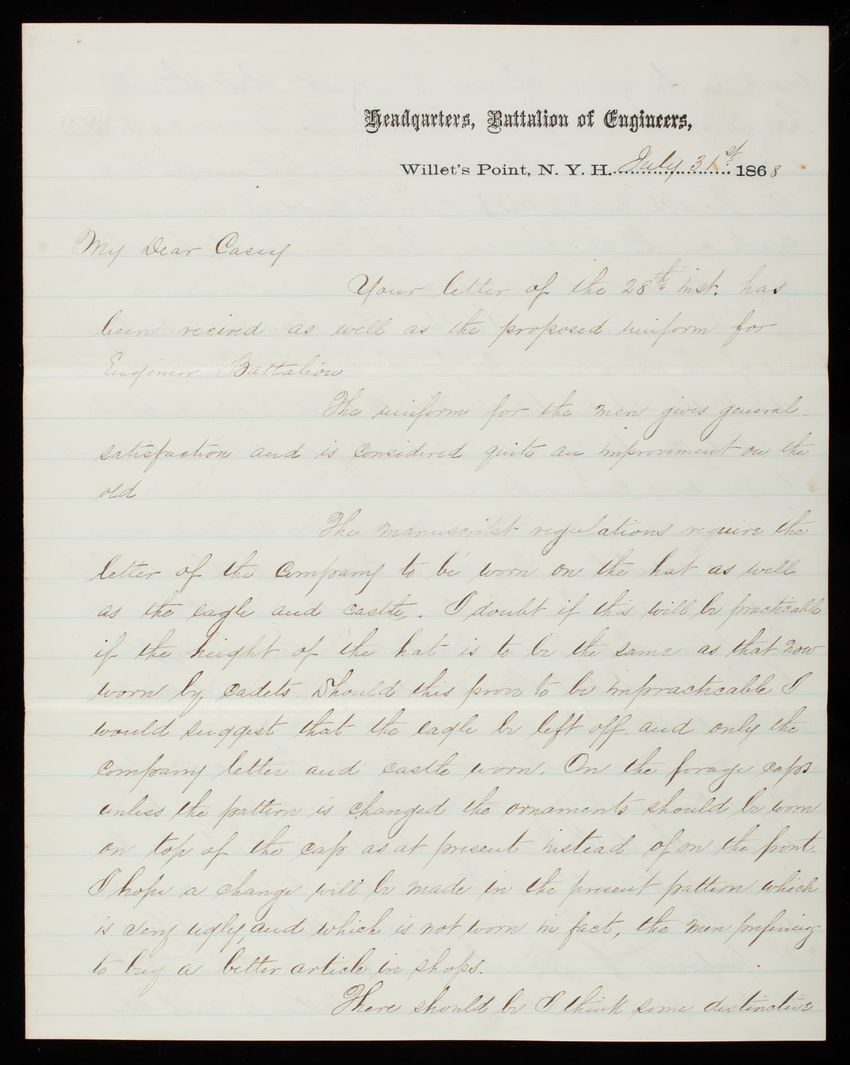 Headqarters, Battalion of Engineers,
Willet's Point, N. Y. H. July 31st 1868
My Dear Casey
Your letter of the 28th inst. has
been recived as well as the proposed uniform for
Engineer Battalion
The uniform for the men gives general
satisfaction and is considered quite an improvement on the
old
The manuscript regulations require the
letter of the company to be worn on the hat as well
as the eagle and castle. I doubt if this will be practicable
if the height of the hat is to be the same as that now
worn by cadets. Should this prove to be impracticable I
would suggest that the eagle be left off and only the
company letter and castle worn. On the forage caps
unless the pattern is changed the ornaments should be worn
on top of the cap as at present instead of on the front.
I hope a change will be made in the present pattern which
is very ugly, and which is not worn in fact, the men prefering
to buy a better article in shops.
There should be I think some distinctive